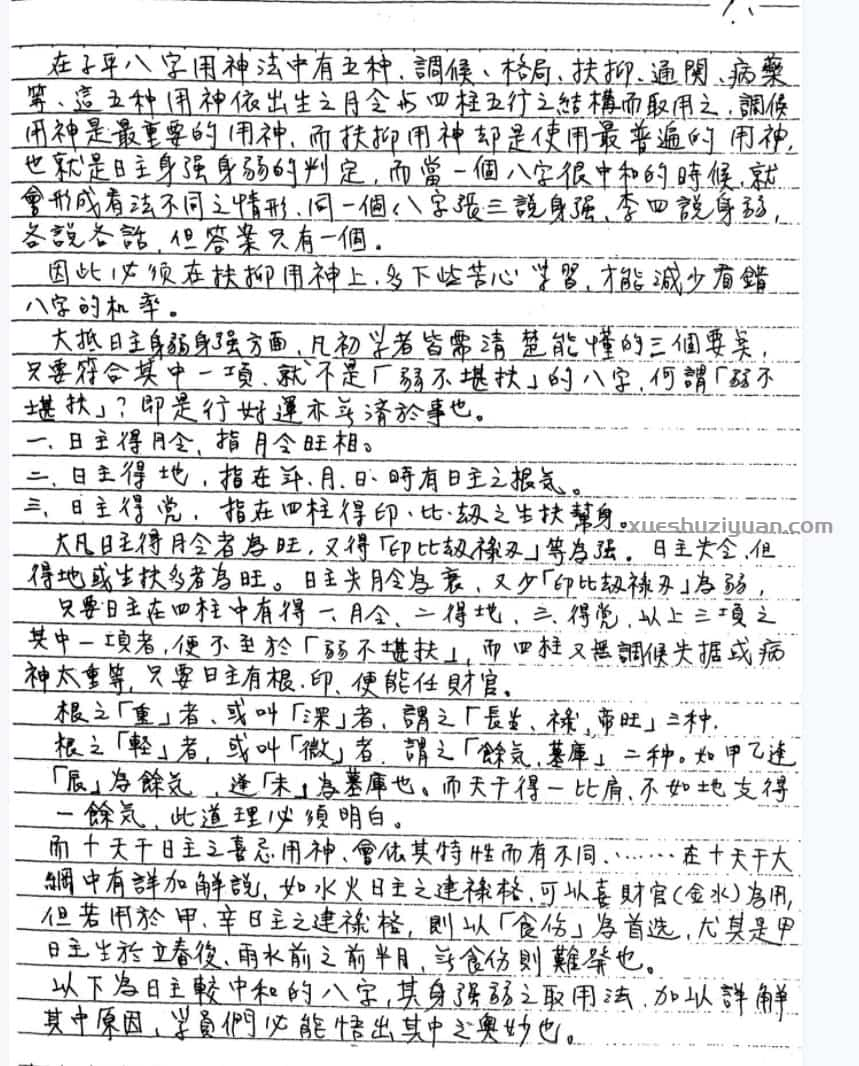 在子平八字用神法中有五种、調候、格局、扶抑、通関、病藥
等、這五种用神依出生之月令与四柱五行之結構而取用之，調候
用神是最重要的用神，而扶抑用神却是使用最普遍的用神，
也就是日主身强身弱的判定，而當一個八字很中和的時候，就
會形成看法不同之情形，同一個八字張三說身强、李四說身弱，
各說各話，但答案只有一個。
因此必须在扶抑用神上，多下些苦心学習，才能減少看錯
八字的机率。
大抵日主身弱身强方面，凡初学者皆需清楚能懂的三個要点，
只要符合其中一項，就不是「弱不堪扶」的八字，何謂「弱不
堪扶」？即是行好運亦无济於事也。
一、日主得月令，指月令旺相。
二、日主得地，指在年、月、日、時有日主之根気。
三、日主得党，指在四柱得印、比、劫之生扶幫身。
xueshuziyuan.com
大凡日主得月令者為旺，又得「印比劫祿刃」等為强。日主失令，但
得地或生扶多者為旺。日主失月令為衰，又少「印比劫祿刃」為弱，
只要日主在四柱中有得一、月令，二、得地，三、得党，以上三項之
其中一項者，便不至於「弱不堪扶」，而四柱又無調候失据或病
神太重等，只要日主有根、印，便能任財官。
根之「重」者，或叫「深」者，謂之「長生、祿、帝旺」三种，
根之「軽」者，或叫「微」者，謂之「餘気、墓庫」二种。如甲乙逢
「辰」為餘気，逢「未」為墓庫也。而天干得一比肩，不如地支得
一餘気，此道理必须明白。
而十天干日主之喜忌用神，會依其特性而有不同，……在十天干大
綱中有詳加解説，如水火日主之建祿格，可以喜財官(金水)為用，
但若用於甲、辛日主之建祿格，則以「食伤」為首选，尤其是甲
日主生於立春後、雨水前之前半月，无食伤則難発也。
以下為日主較中和的八字，其身强弱之取用法，加以詳解
其中原因，学員們必能悟出其中之奥妙也。